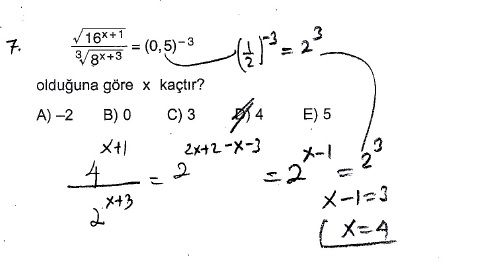 7. √16ˣ⁺¹ / ³√8ˣ⁺³ = (0,5)⁻³ (1/2)⁻³ = 2³
olduğuna göre x kaçtır?
A) –2 B) 0 C) 3 D) 4 E) 5
4ˣ⁺¹ / 2ˣ⁺³ = 2²ˣ⁺²⁻ˣ⁻³ = 2ˣ⁻¹ = 2³
x–1=3
x=4